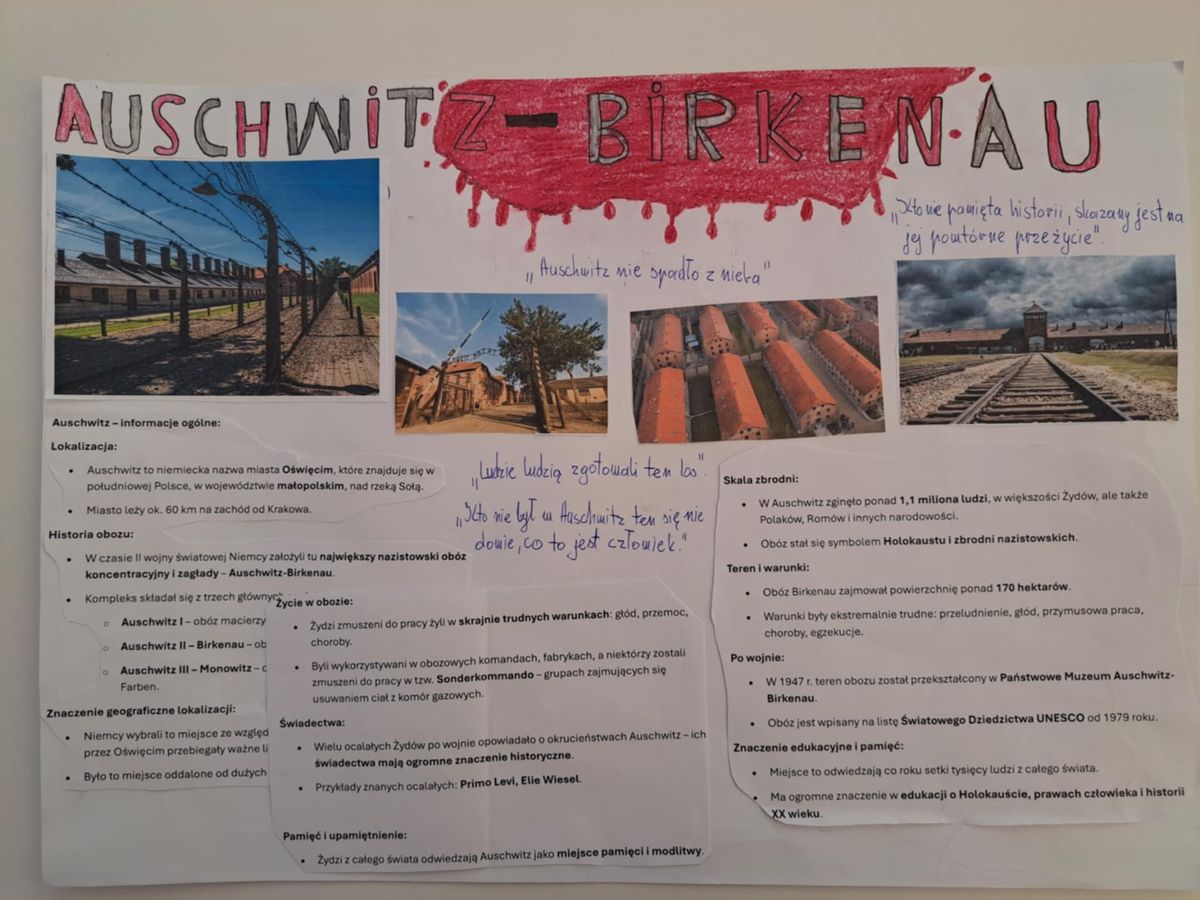 AUSCHWiTZ-BiRKENAU
„Kto nie pamięta historii, skazany jest na
jej powtórne przeżycie".
„Auschwitz nie spadło z nieba"
„Ludzie ludzią zgotowali ten los".
„Kto nie był w Auschwitz ten się nie
dowie, co to jest człowiek."
Auschwitz – informacje ogólne:
Lokalizacja:
• Auschwitz to niemiecka nazwa miasta Oświęcim, które znajduje się w
południowej Polsce, w województwie małopolskim, nad rzeką Sołą.
• Miasto leży ok. 60 km na zachód od Krakowa.
Historia obozu:
• W czasie II wojny światowej Niemcy założyli tu największy nazistowski obóz
koncentracyjny i zagłady – Auschwitz-Birkenau.
• Kompleks składał się z trzech głównyc
○ Auschwitz I – obóz macierzy
○ Auschwitz II – Birkenau – ob
○ Auschwitz III – Monowitz –
Farben.
Znaczenie geograficzne lokalizacji:
• Niemcy wybrali to miejsce ze względ
przez Oświęcim przebiegały ważne li
• Było to miejsce oddalone od dużych
Życie w obozie:
• Żydzi zmuszeni do pracy żyli w skrajnie trudnych warunkach: głód, przemoc,
choroby.
• Byli wykorzystywani w obozowych komandach, fabrykach, a niektórzy zostali
zmuszeni do pracy w tzw. Sonderkommando – grupach zajmujących się
usuwaniem ciał z komór gazowych.
Świadectwa:
• Wielu ocalałych Żydów po wojnie opowiadało o okrucieństwach Auschwitz – ich
świadectwa mają ogromne znaczenie historyczne.
• Przykłady znanych ocalałych: Primo Levi, Elie Wiesel.
Pamięć i upamiętnienie:
• Żydzi z całego świata odwiedzają Auschwitz jako miejsce pamięci i modlitwy.
Skala zbrodni:
• W Auschwitz zginęło ponad 1,1 miliona ludzi, w większości Żydów, ale także
Polaków, Romów i innych narodowości.
• Obóz stał się symbolem Holokaustu i zbrodni nazistowskich.
Teren i warunki:
• Obóz Birkenau zajmował powierzchnię ponad 170 hektarów.
• Warunki były ekstremalnie trudne: przeludnienie, głód, przymusowa praca,
choroby, egzekucje.
Po wojnie:
• W 1947 r. teren obozu został przekształcony w Państwowe Muzeum Auschwitz-
Birkenau.
• Obóz jest wpisany na listę Światowego Dziedzictwa UNESCO od 1979 roku.
Znaczenie edukacyjne i pamięć:
• Miejsce to odwiedzają co roku setki tysięcy ludzi z całego świata.
• Ma ogromne znaczenie w edukacji o Holokauście, prawach człowieka i historii
XX wieku.